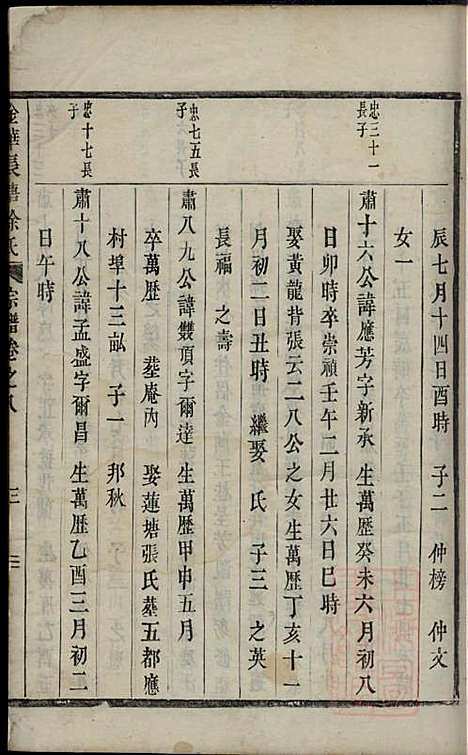 辰七月十四日酉時　子二　仲榜　仲文
女一
忠三十一
長子
肅十六公諱應芳字新承　生萬歷癸未六月初八
日卯時卒崇禎壬午二月廿六日巳時
娶黃龍背張云二八公之女生萬歷丁亥十一
月初二日丑時　繼娶　氏　子三　之英
長福　之壽
忠七五長
子
肅八九公諱雙頂字爾達　生萬歷甲申五月
卒萬歷　墓庵內　娶蓮塘張氏墓五都應
村埠十三畝月　子一　邦秋
忠十七長
子
肅十八公諱孟盛字爾昌　生萬歷乙酉三月初二
日午時
金華長塘徐氏宗譜卷之八　三